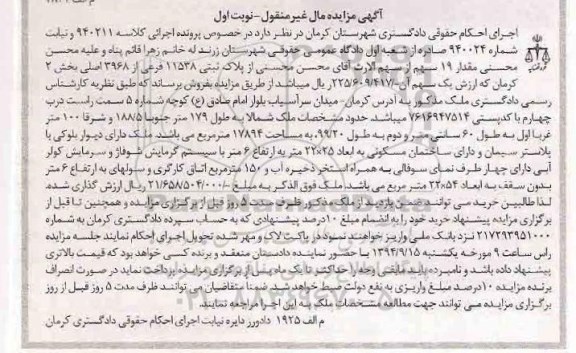 آگهی مزایده مال غیر منقول - نوبت اول
اجرای احکام حقوقی دادگستری شهرستان کرمان در نظر دارد در خصوص پرونده اجرائی کلاسه ۹۴۰۲۱۱ و نیابت
شماره ۹۴۰۰۲۴ صادره از شعبه اول دادگاه عمومی حقوقی شهرستان زرند له خانم زهرا قائم پناه و علیه محسن
محسنی مقدار ۱۹ سهم از سهم الارث آقای محسن محسنی از پلاک ثبتی ۱۱۵۳۸ فرعی از ۳۹۶۸ اصلی بخش ۲
کرمان که ارزش یک سهم آن ۲۲۵/۶۰۹/۴۱۷/- ریال میباشد از طریق مزایده بفروش برساند که طبق نظریه کارشناس
رسمی دادگستری ملک مذکور به آدرس کرمان - میدان سرآسیاب بلوار امام صادق (ع) کوچه شماره ۵ سمت راست درب
چهارم با کدپستی ۷۶۱۶۹۴۷۵۱۴ میباشد. حدود مشخصات ملک شمالا به طول ۱۷۹ متر جنوبا ۱۸۸/۵ و شرقا ۱۰۰ متر
غربا اول به طول ۶۰ سانتی متر و دوم به طول ۹۹/۲۰. به مساحت ۱۷۸۹۴ مترمربع می باشد. ملک دارای دیوار بلوکی با
پلاستر سیمان و دارای ساختمان مسکونی به ابعاد ۲۵×۲۲ متر به ارتفاع ۶ متر با سیستم گرمایش شوفاژ و سرمایش کولر
آبی دارای چهار طرف نمای سوفالی به همراه استخر ذخیره آب و ۱۵۰ مترمربع اتاق کارگری و سولهای به ارتفاع ۶ متر
بدون سقف به ابعاد ۵۴×۲۲ متر مربع می باشد. ملک فوق الذکر به مبلغ ۲۱/۶۵۸/۵۰۴/۰۰۰/- ریال ارزش گذاری شده.
لذا طالبین خرید می توانند ضمن بازدید از ملک مذکور ظرف مدت ۵ روز قبل از برگزاری مزایده و همچنین تا قبل از
برگزاری مزایده پیشنهاد خرید خود را به انضمام مبلغ ۱۰ درصد پیشنهادی که به حساب سپرده دادگستری کرمان به شماره
۲۱۷۲۹۳۹۵۱۰۰۰ نزد بانک ملی واریز خواهند نمود در پاکت لاک و مهر شده تحویل اجرای احکام نمایند جلسه مزایده
راس ساعت ۹ مورخه یکشنبه ۱۳۹۴/۹/۱۵ با حضور نماینده دادستان منعقد و برنده کسی خواهد بود که قیمت بالاتری
پیشنهاد داده باشد و نامبرده باید مابقی وجه را حداکثر تا یک ماه پس از برگزاری مزایده پرداخت نماید در صورت انصراف
برنده مزایده ۱۰ درصد مبلغ واریزی به نفع دولت ضبط خواهد شد. ضمنا متقاضیان می توانند ظرف مدت ۵ روز قبل از روز
برگزاری مزایده می توانند جهت مطالعه مشخصات ملک به این اجرا مراجعه نمایند.
م الف ۱۹۲۵ دادورز دایره نیابت اجرای احکام حقوقی دادگستری کرمان